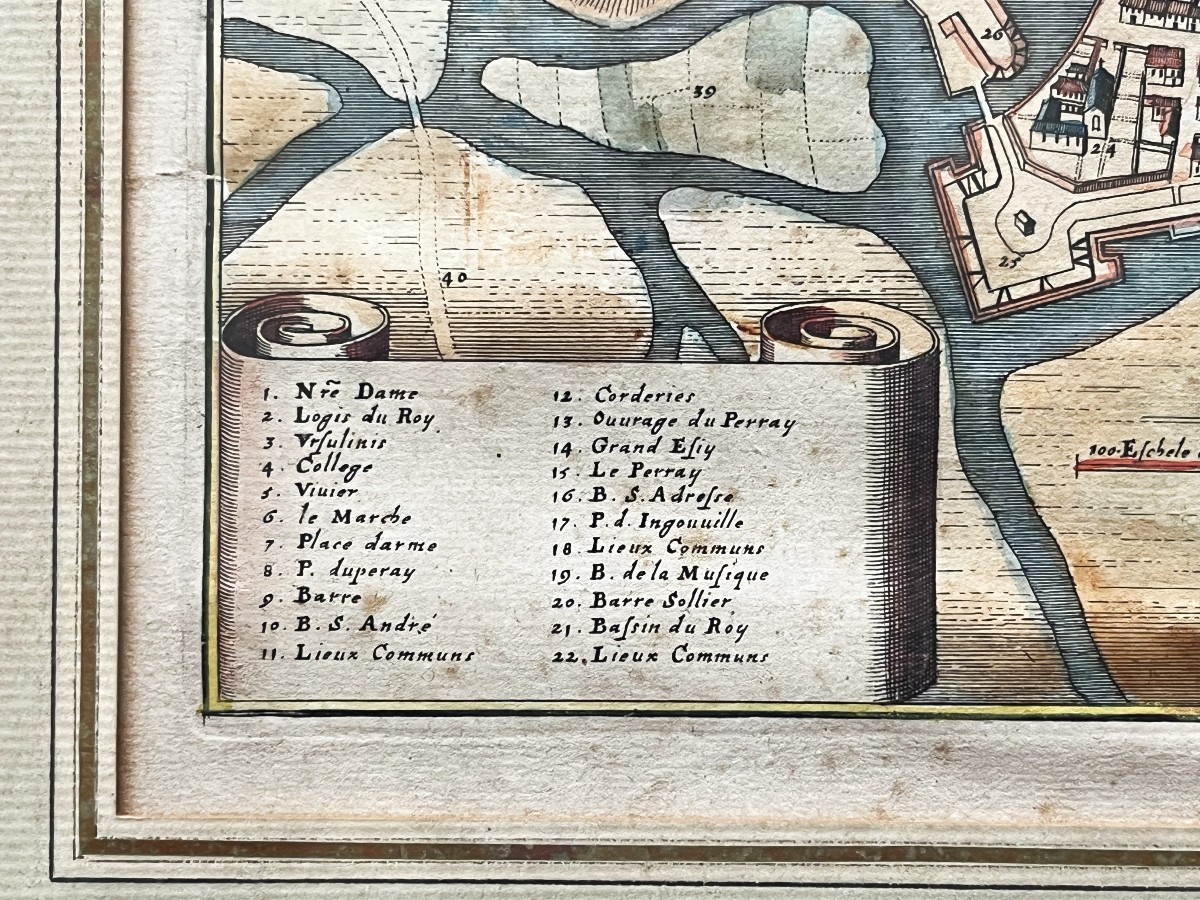 26
39
24
25
40
100. Eſchele
1. Nr̃e Dame
2. Logis du Roy
3. Vrſulinis
4. College
5. Viuier
6. le Marche
7. Place darme
8. P. duperay
9. Barre
10. B. S. André
11. Lieux Communs
12. Corderies
13. Ouurage du Perray
14. Grand Eſiy
15. Le Perray
16. B. S. Adreſse
17. P. d. Ingouuille
18. Lieux Communs
19. B. de la Muſique
20. Barre Sollier
21. Baſsin du Roy
22. Lieux Communs